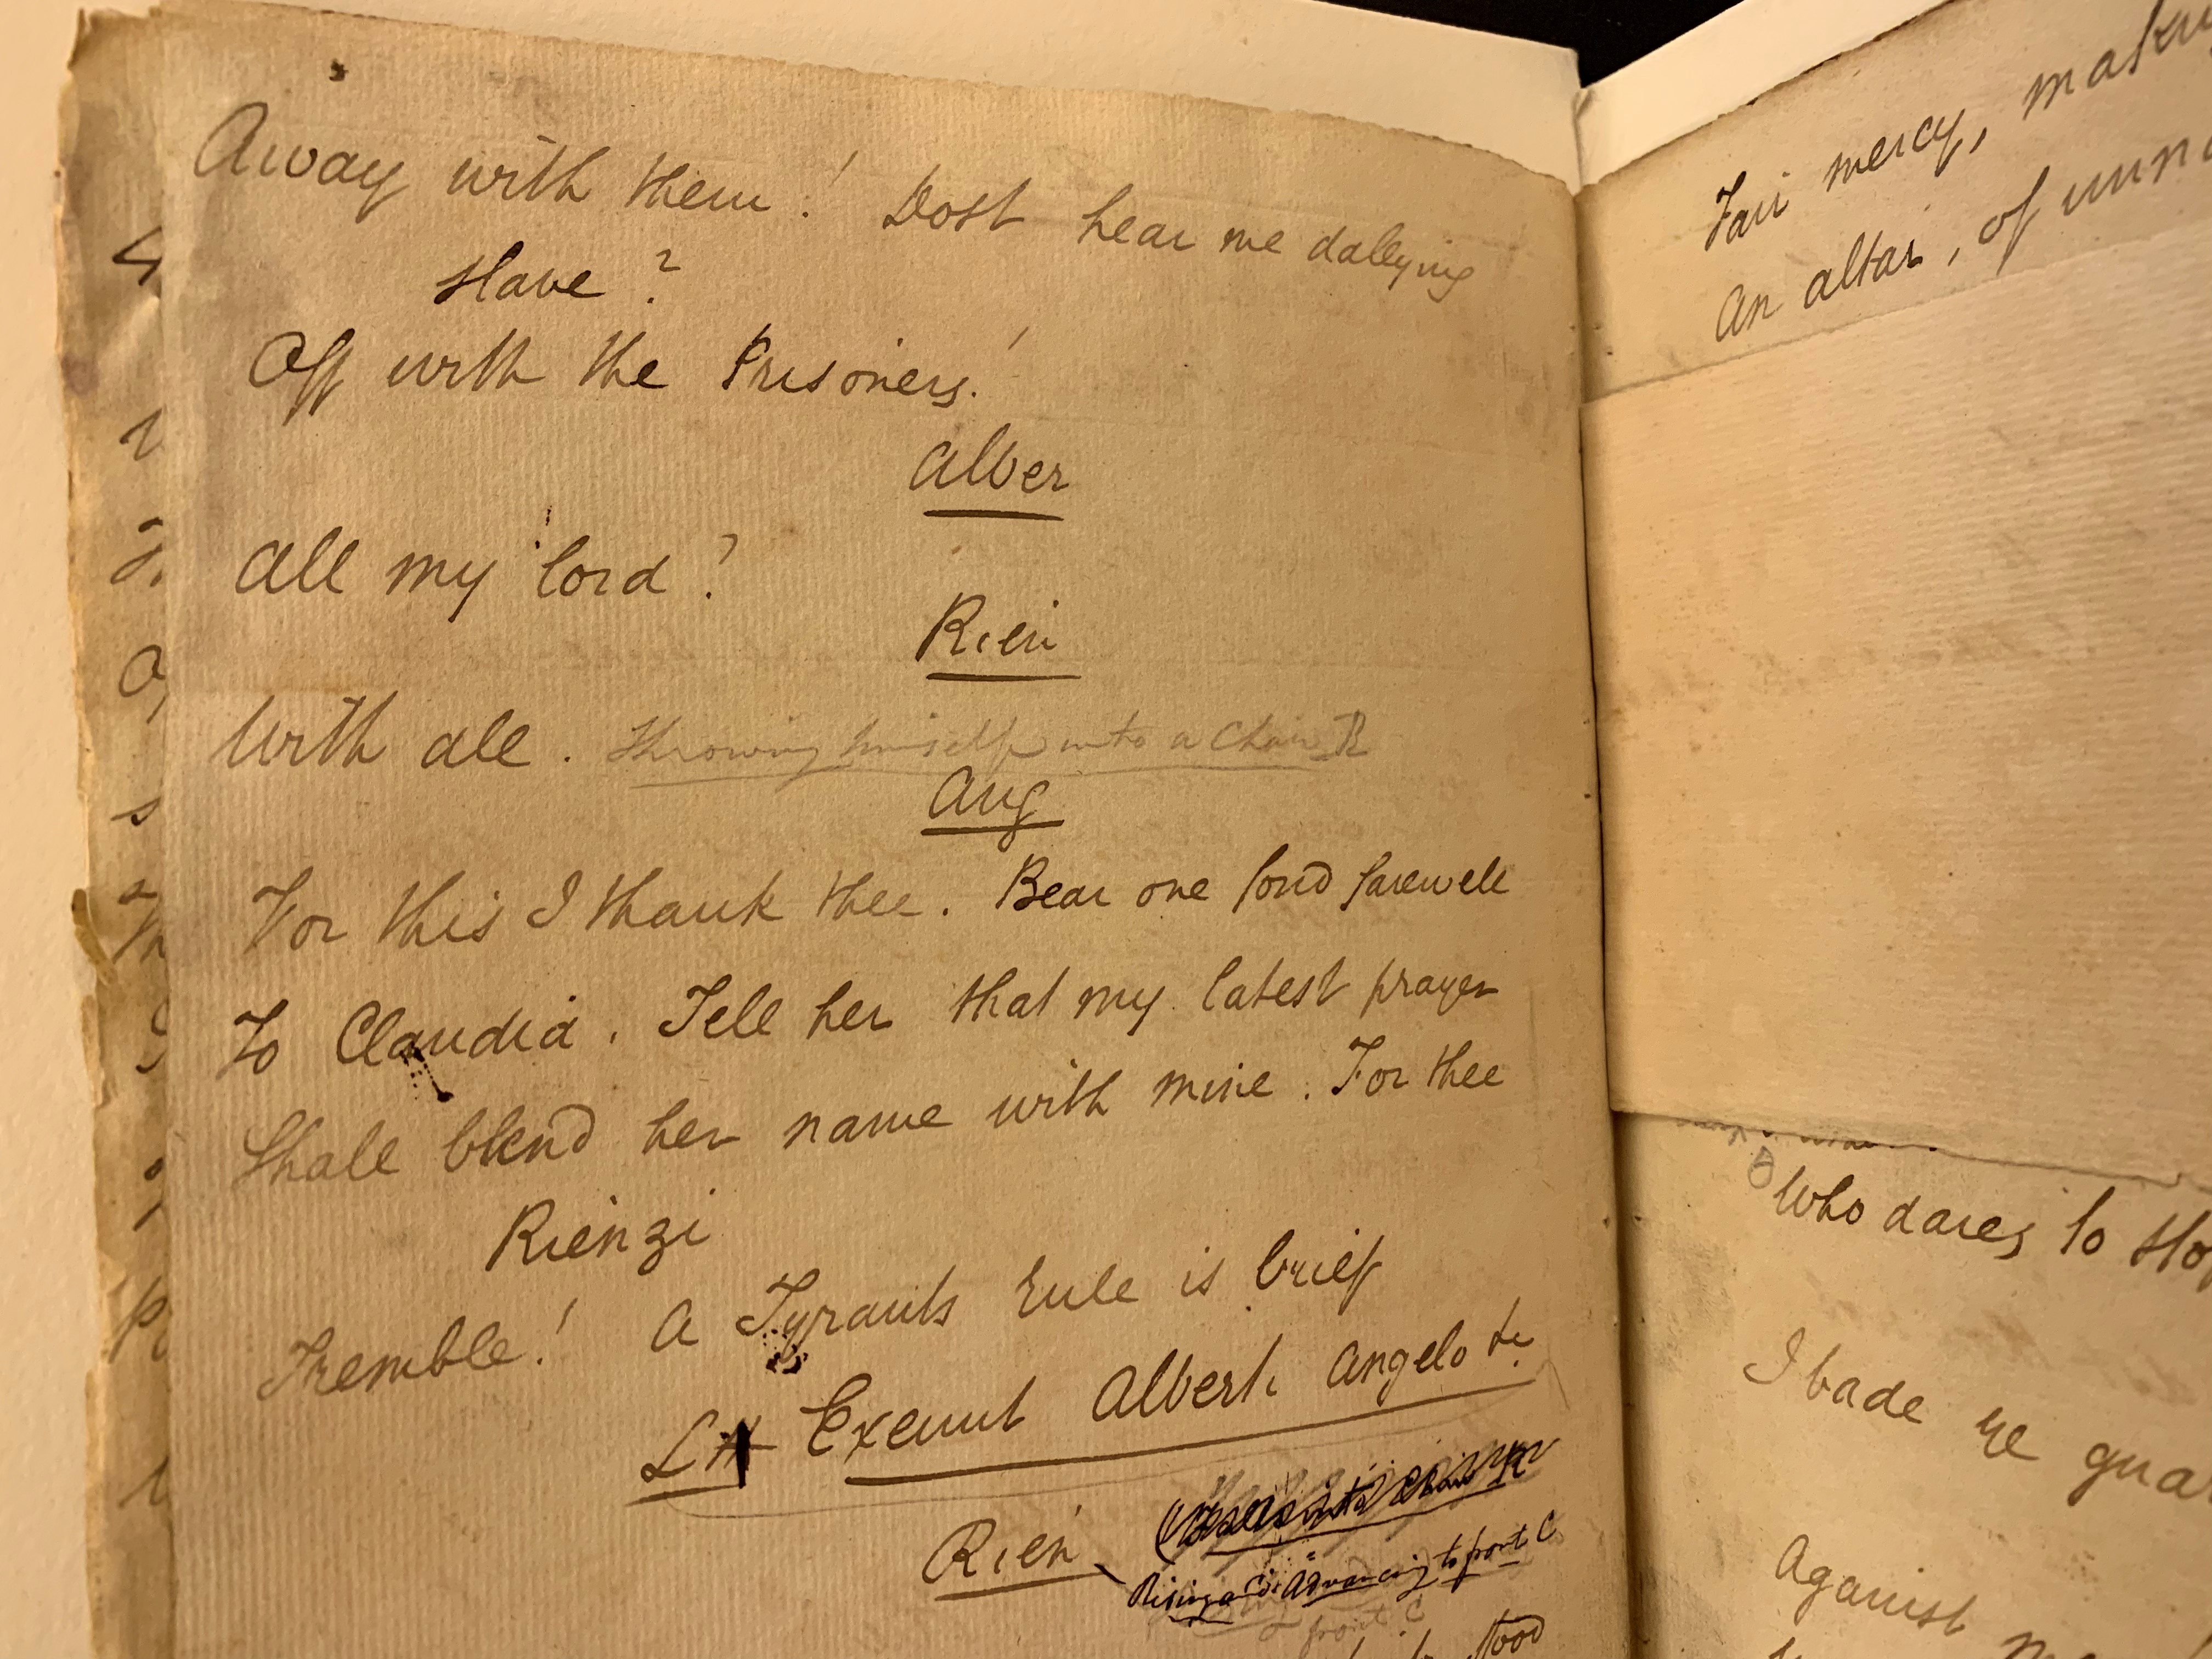 Away with them! Dost hear me dallying
Slave?
Off with the Prisoners!
Alber
All my lord?
Rien
With all. Throwing himself into a Chair R
Ang
For this I thank thee. Bear one fond farewell
To Claudia. Tell her that my latest prayer
Shall blend her name with mine. For thee
Rienzi
Tremble! A Tyrants rule is brief
LH Exeunt Alberti Angelo &c
Rien
Rising and Advancing to front C
front C
stood
Fair mercy,
An altar, of
Who dares to
I bade ye
Against